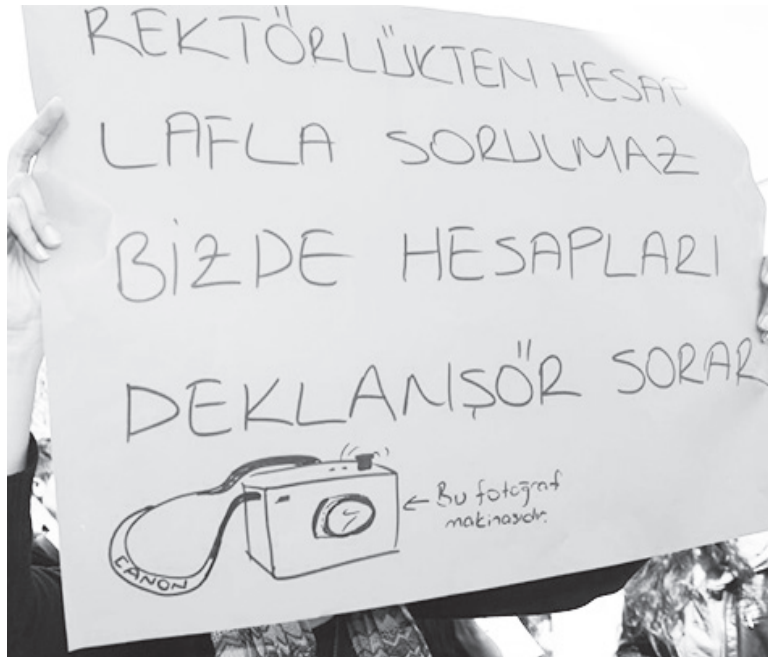 REKTÖRLÜKTEN HESAP
LAFLA SORULMAZ
BİZDE HESAPLARI
DEKLANŞÖR SORAR
← Bu fotoğraf
makinasıdır.
CANON